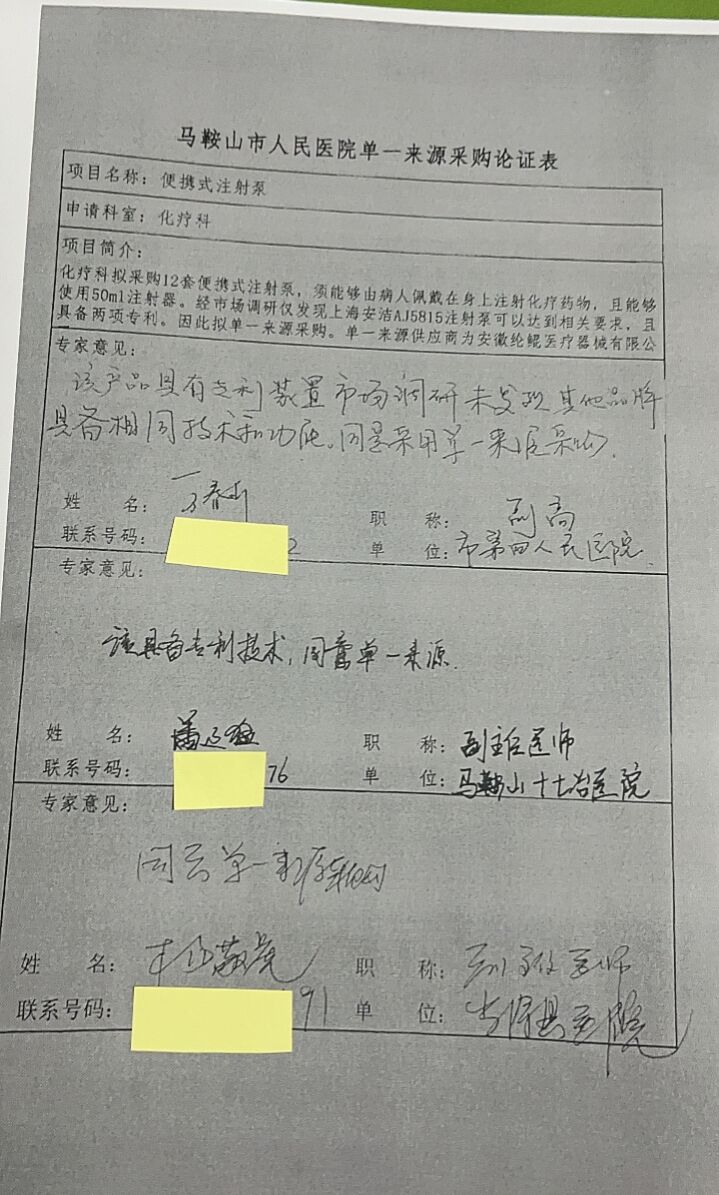 马鞍山市人民医院单一来源采购论证表
项目名称：便携式注射泵
申请科室：化疗科
项目简介：
化疗科拟采购12套便携式注射泵，须能够由病人佩戴在身上注射化疗药物，且能够
使用50ml注射器。经市场调研仅发现上海安洁AJ5815注射泵可以达到相关要求，且
具备两项专利。因此拟单一来源采购。单一来源供应商为安徽纶鲲医疗器械有限公
专家意见：
该产品具有专利装置市场调研未发现其他品牌
具备相同技术和功能。同意采用单一来源采购.
姓 名： 职 称：副高
联系号码： 2 单 位：市第四人民医院.
专家意见：
该具备专利技术，同意单一来源.
姓 名： 职 称：副主任医师
联系号码： 76 单 位：马鞍山十七冶医院
专家意见：
同意单一来源采购
姓 名： 职 称：副主任医师
联系号码： 91 单 位：当涂县医院